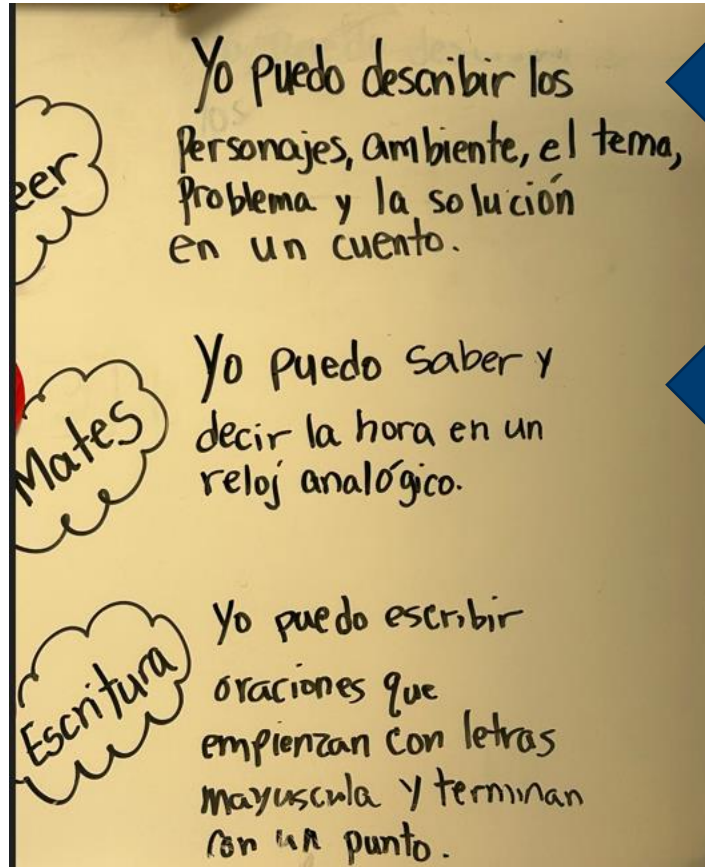 Yo puedo describir los
personajes, ambiente, el tema,
problema y la solución
en un cuento.
eer
Yo puedo saber y
decir la hora en un
reloj analógico.
Mates
Yo puedo escribir
oraciones que
empienzan con letras
mayuscula y terminan
con un punto.
Escritura